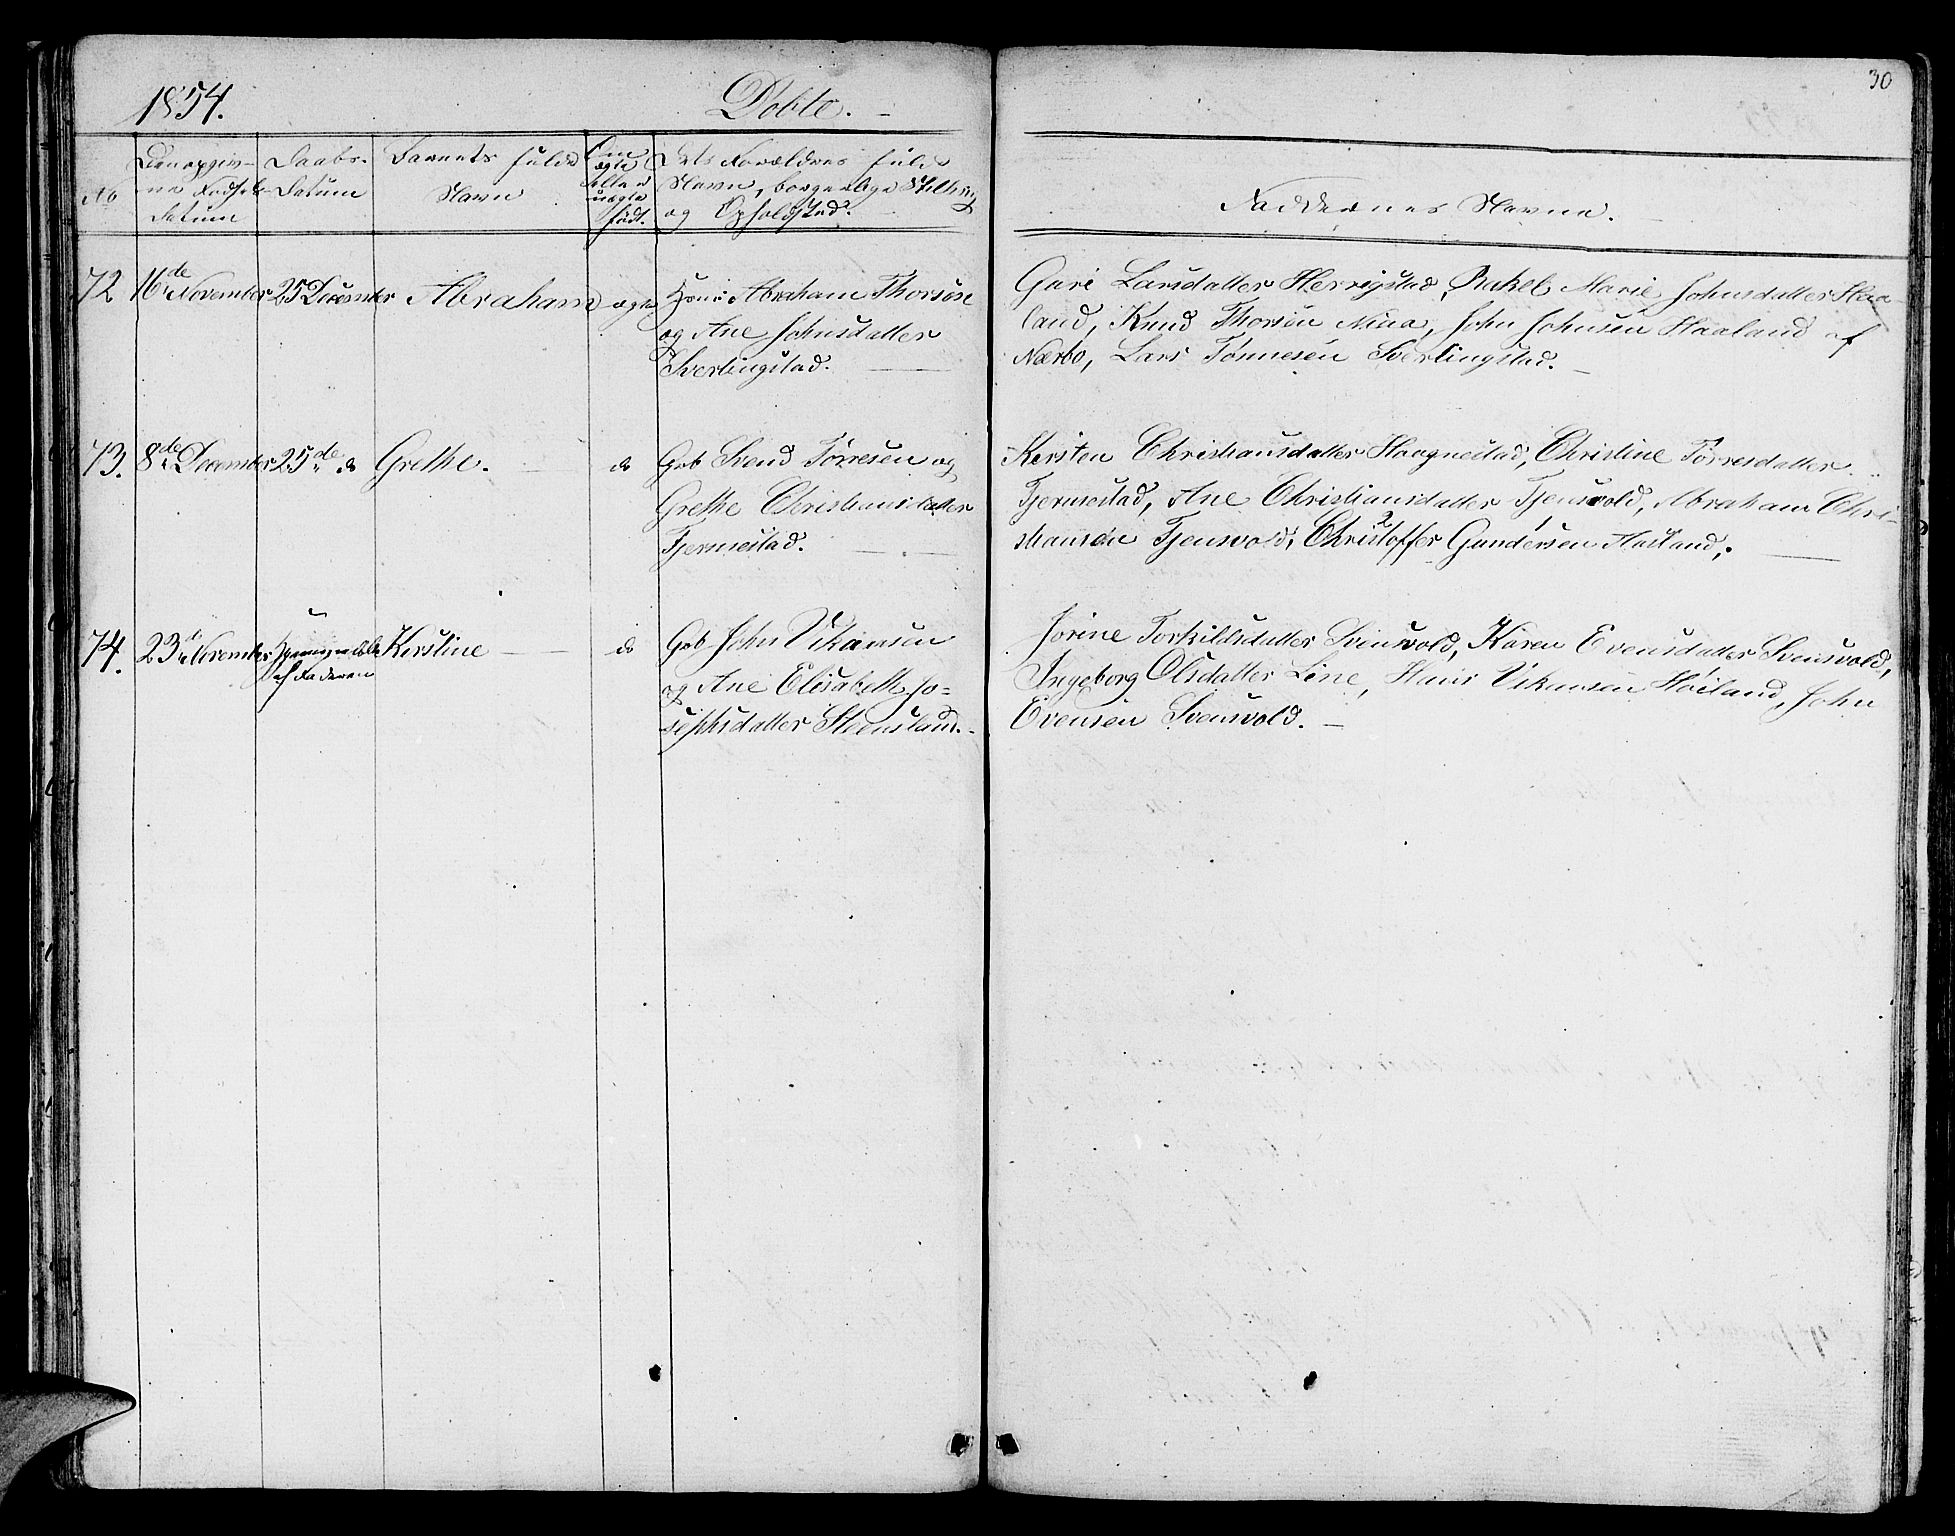 30
1854. Døbte.
No
Den opgiv-
ne Fødsels
Datum
Daabs-
Datum
Barnets fulde
Navn
Om
ægte
eller
uægte
født.
Dets Forældres fulde
Navn, borgerlige Stilling
og Opholdsted.
Faddernes Navne.
72 16de November 25 December Abraham ægte Abraham Thorsen
og Ane Johnsdatter
Sverlingstad.
Guri Larsdatter Herrigstad, Rakel Marie Johnsdatter Haa-
land, Knud Thorsen Niua, John Johnsen Haaland af
Nærbo, Lars Tønnesen Sverlingstad.
73. 8de December 25de do Grethe. do Gmd Svend Tørresen og
Grethe Christiansdatter
Fjermestad.
Kirsten Christiansdatter Haagnestad, Christine Tørresdatter
Fjermestad, Ane Christiansdatter Tjensvold, Abraham Chri-
stiansen Tjensvold, Christoffer Gundersen Hasland.
74. 23de November Hjemmedøbt
af Faderen
Kirstine do Gmd John Vikansen
og Ane Elisabeth Jo-
sephsdatter Steensland.
Jorine Torkildsdatter Svensvold, Karen Evensdatter Svensvold,
Ingeborg Olsdatter Line, Hans Vikansen Høiland, John
Evensen Svensvold.